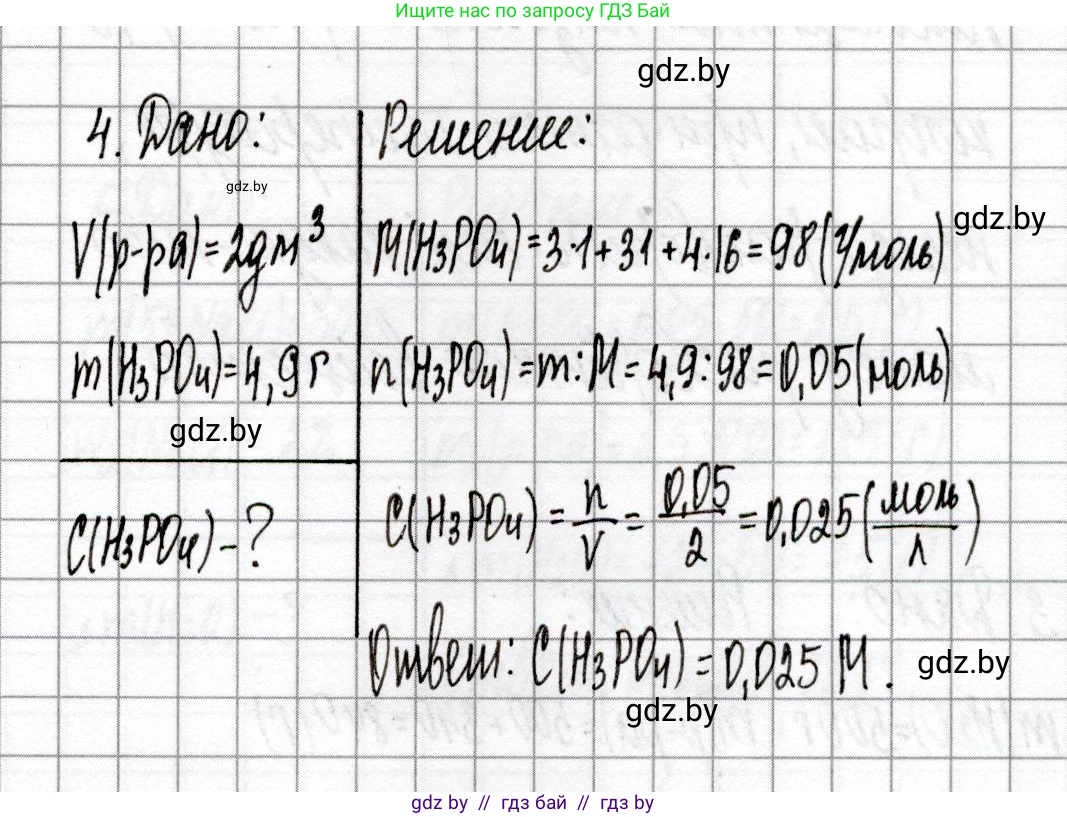 Ищите нас по запросу ГДЗ Бай
gdz.by
4. Дано:
gdz.by
V(р-ра)=2дм³
m(H₃PO₄)=4,9 г
gdz.by
C(H₃PO₄) - ?
Решение:
gdz.by
M(H₃PO₄)=3·1+31+4·16=98 (г/моль)
n(H₃PO₄)=m:M=4,9:98=0,05(моль)
C(H₃PO₄) = n/V = 0,05/2 = 0,025 (моль/л)
Ответ: C(H₃PO₄)=0,025 М.
gdz.by
gdz.by
gdz.by // гдз бай // гдз by